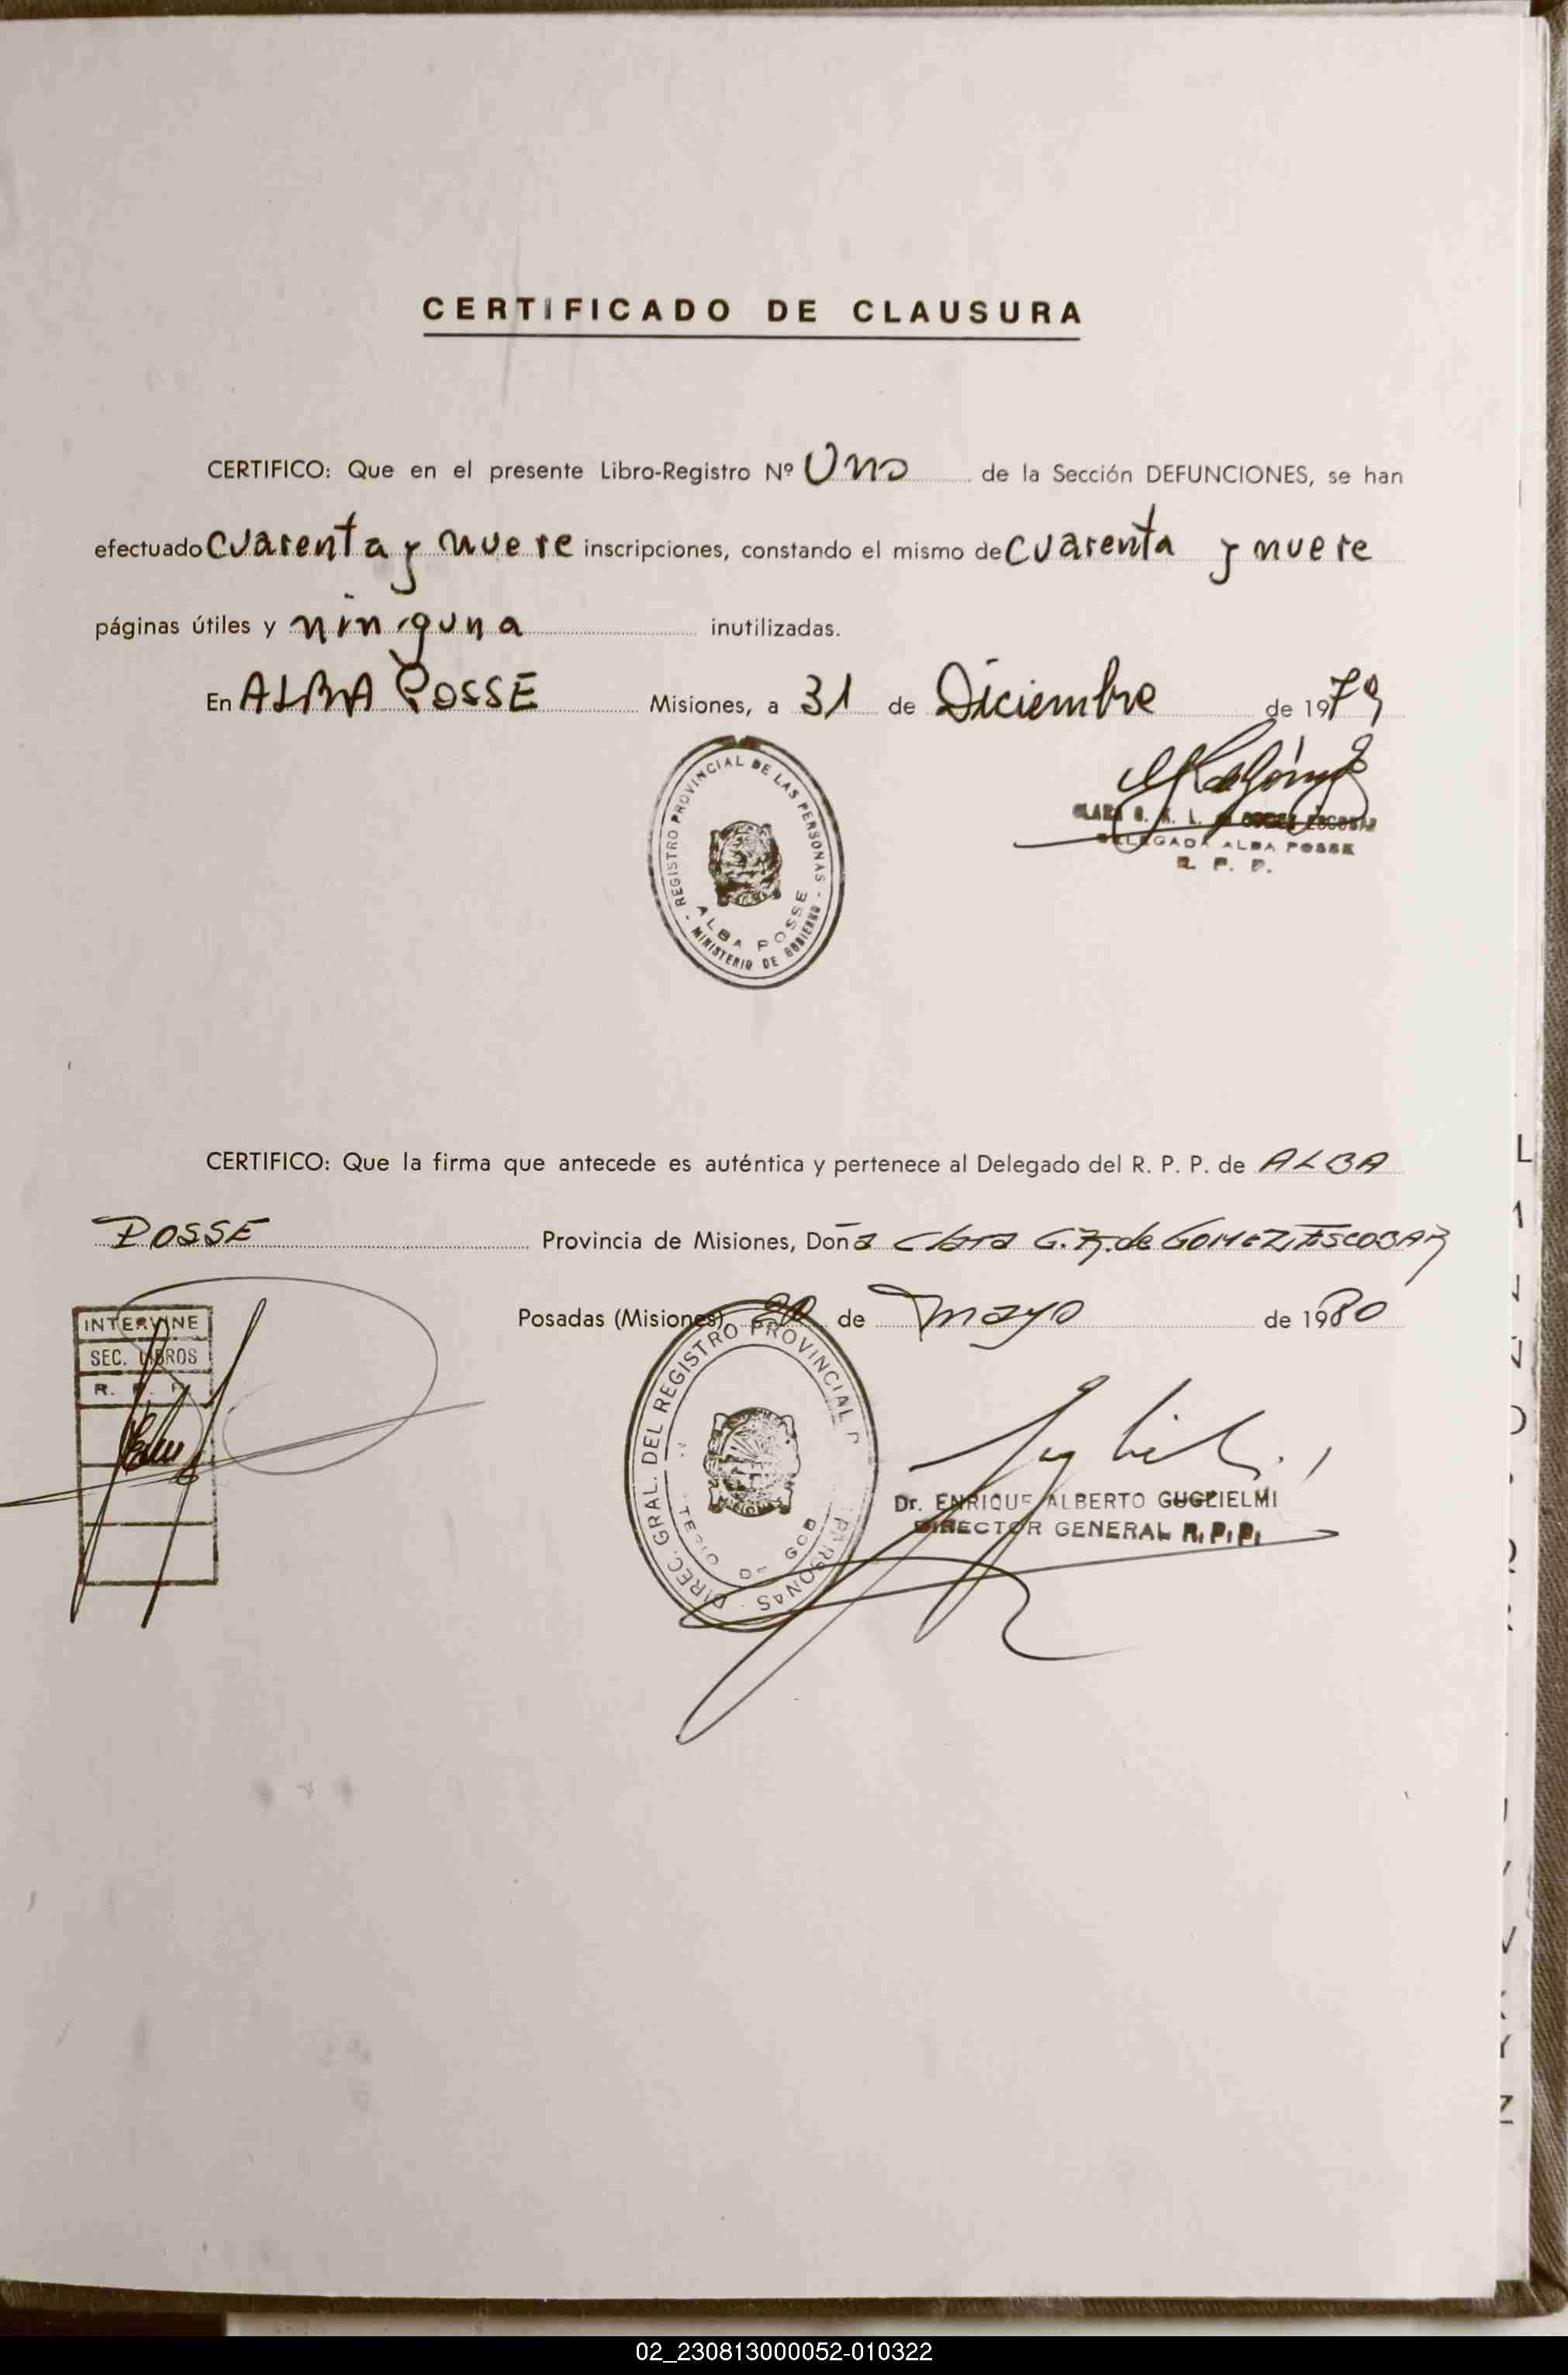 CERTIFICADO DE CLAUSURA
CERTIFICO: Que en el presente Libro-Registro Nº Uno de la Sección DEFUNCIONES, se han
efectuado cuarenta y nueve inscripciones, constando el mismo de cuarenta y nueve
páginas útiles y ninguna inutilizadas.
En ALBA POSSE Misiones, a 31 de Diciembre de 1979
REGISTRO PROVINCIAL DE LAS PERSONAS
ALBA POSSE
MINISTERIO DE GOBIERNO
DELEGADA ALBA POSSE
R. P. P.
CERTIFICO: Que la firma que antecede es auténtica y pertenece al Delegado del R. P. P. de ALBA
POSSE Provincia de Misiones, Doña Clara G. K. de GOMEZ ESCOBAR
Posadas (Misiones), de mayo de 1980
INTERVINE
SEC. LIBROS
DIREC. GRAL. DEL REGISTRO PROVINCIAL PERSONAS
Dr. ENRIQUE ALBERTO GUGLIELMI
DIRECTOR GENERAL R.P.P.
L
Z
02_230813000052-010322